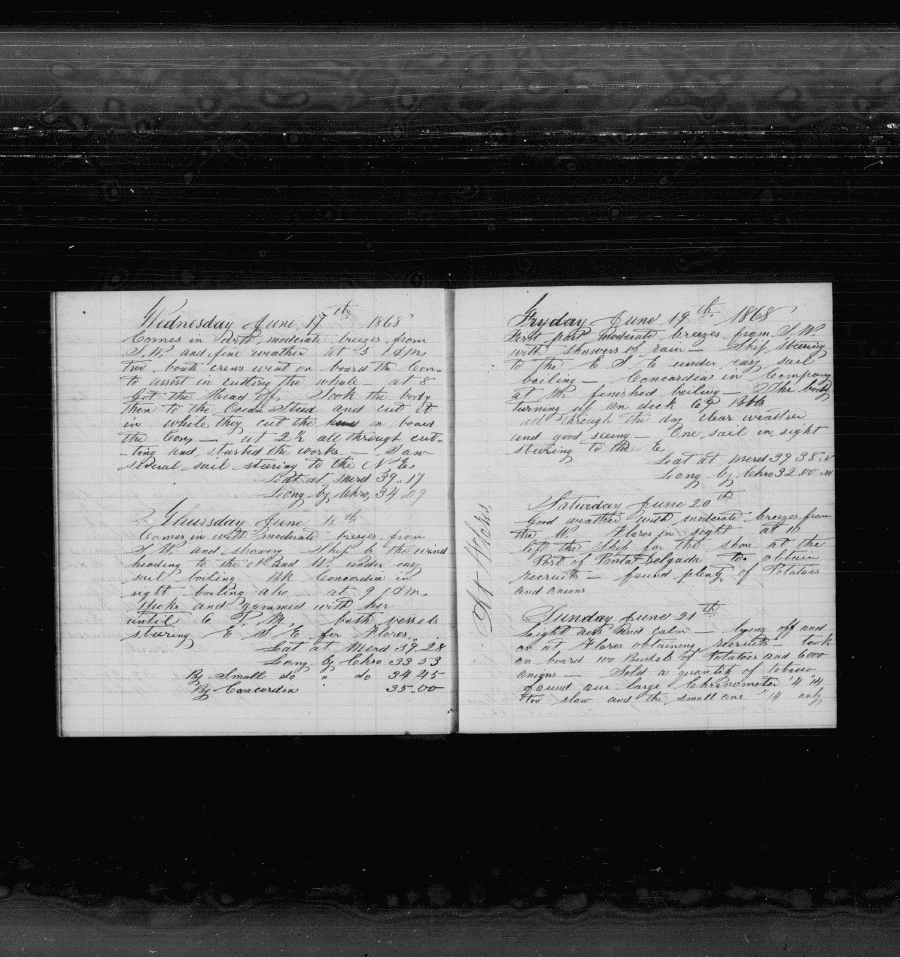 Wednesday June 17th 1868
Comes in with moderate breezes from
S.W. and fine weather at 5 A m
two boats crews went on board the Con-
to assist in cutting the whale — at 8
Got the Head off, Took the body
then to the Ocean Steed and cut it
in while they cut the head on board
the Con, — at 2 ½ all through cut-
-ting and started the works. — Saw
several sail steering to the N E,
Lat at Merd 39.17
Long by Chro, 34.09
Thursday June 18th
Comes in with moderate breezes from
S.W. and showery Ship by the wind
heading to the N and W. under easy
sail boiling Bk Concordia in
sight boiling also at 9 A m
spoke and gammed with her
until 6 P.M, both vessels
steering E S E for Flores
Lat at Merd 39.28
Long by Chro 33 53
By Small do " do 34 45
By Concordia " 35.00
Fryday June 19th 1868
First part Moderate breezes from S.W.
with showers of rain — Ship steering
to the E S E under easy sail
boiling — Concordia in Company
at M. finished boiling — The body
turning up on deck 69 bbls
all through the day clear weather
and good seeing — One sail in sight
steering to the E,
Lat at Merd 39 38 N
Long by Chro 32.00 W
Saturday June 20th
Good weather with moderate breezes from
the W. Flores in sight at 10
left the Ship for the shore at the
Port of Ponta Delgada to obtain
recruits — found plenty of Potatoes
and onions
Sunday June 21th
Light airs and calm — lying off and
on at Flores obtaining recruits — took
on board 100 Bushels of Potatoes and 6000
onions — Sold a quantity of tobacco
found our large Chronometer 4' 14"
too slow and the small one "14 only